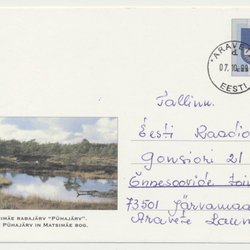 ARAVETE
07.10.99
EESTI
Tallinn.
Eesti Raadio
Gonsiori 21
Õnnesoovide
73501 Järvamaa
Aravete
IMÄE RABAJÄRV "PÜHAJÄRV".
PÜHAJÄRV IN MATSIMÄE BOG.